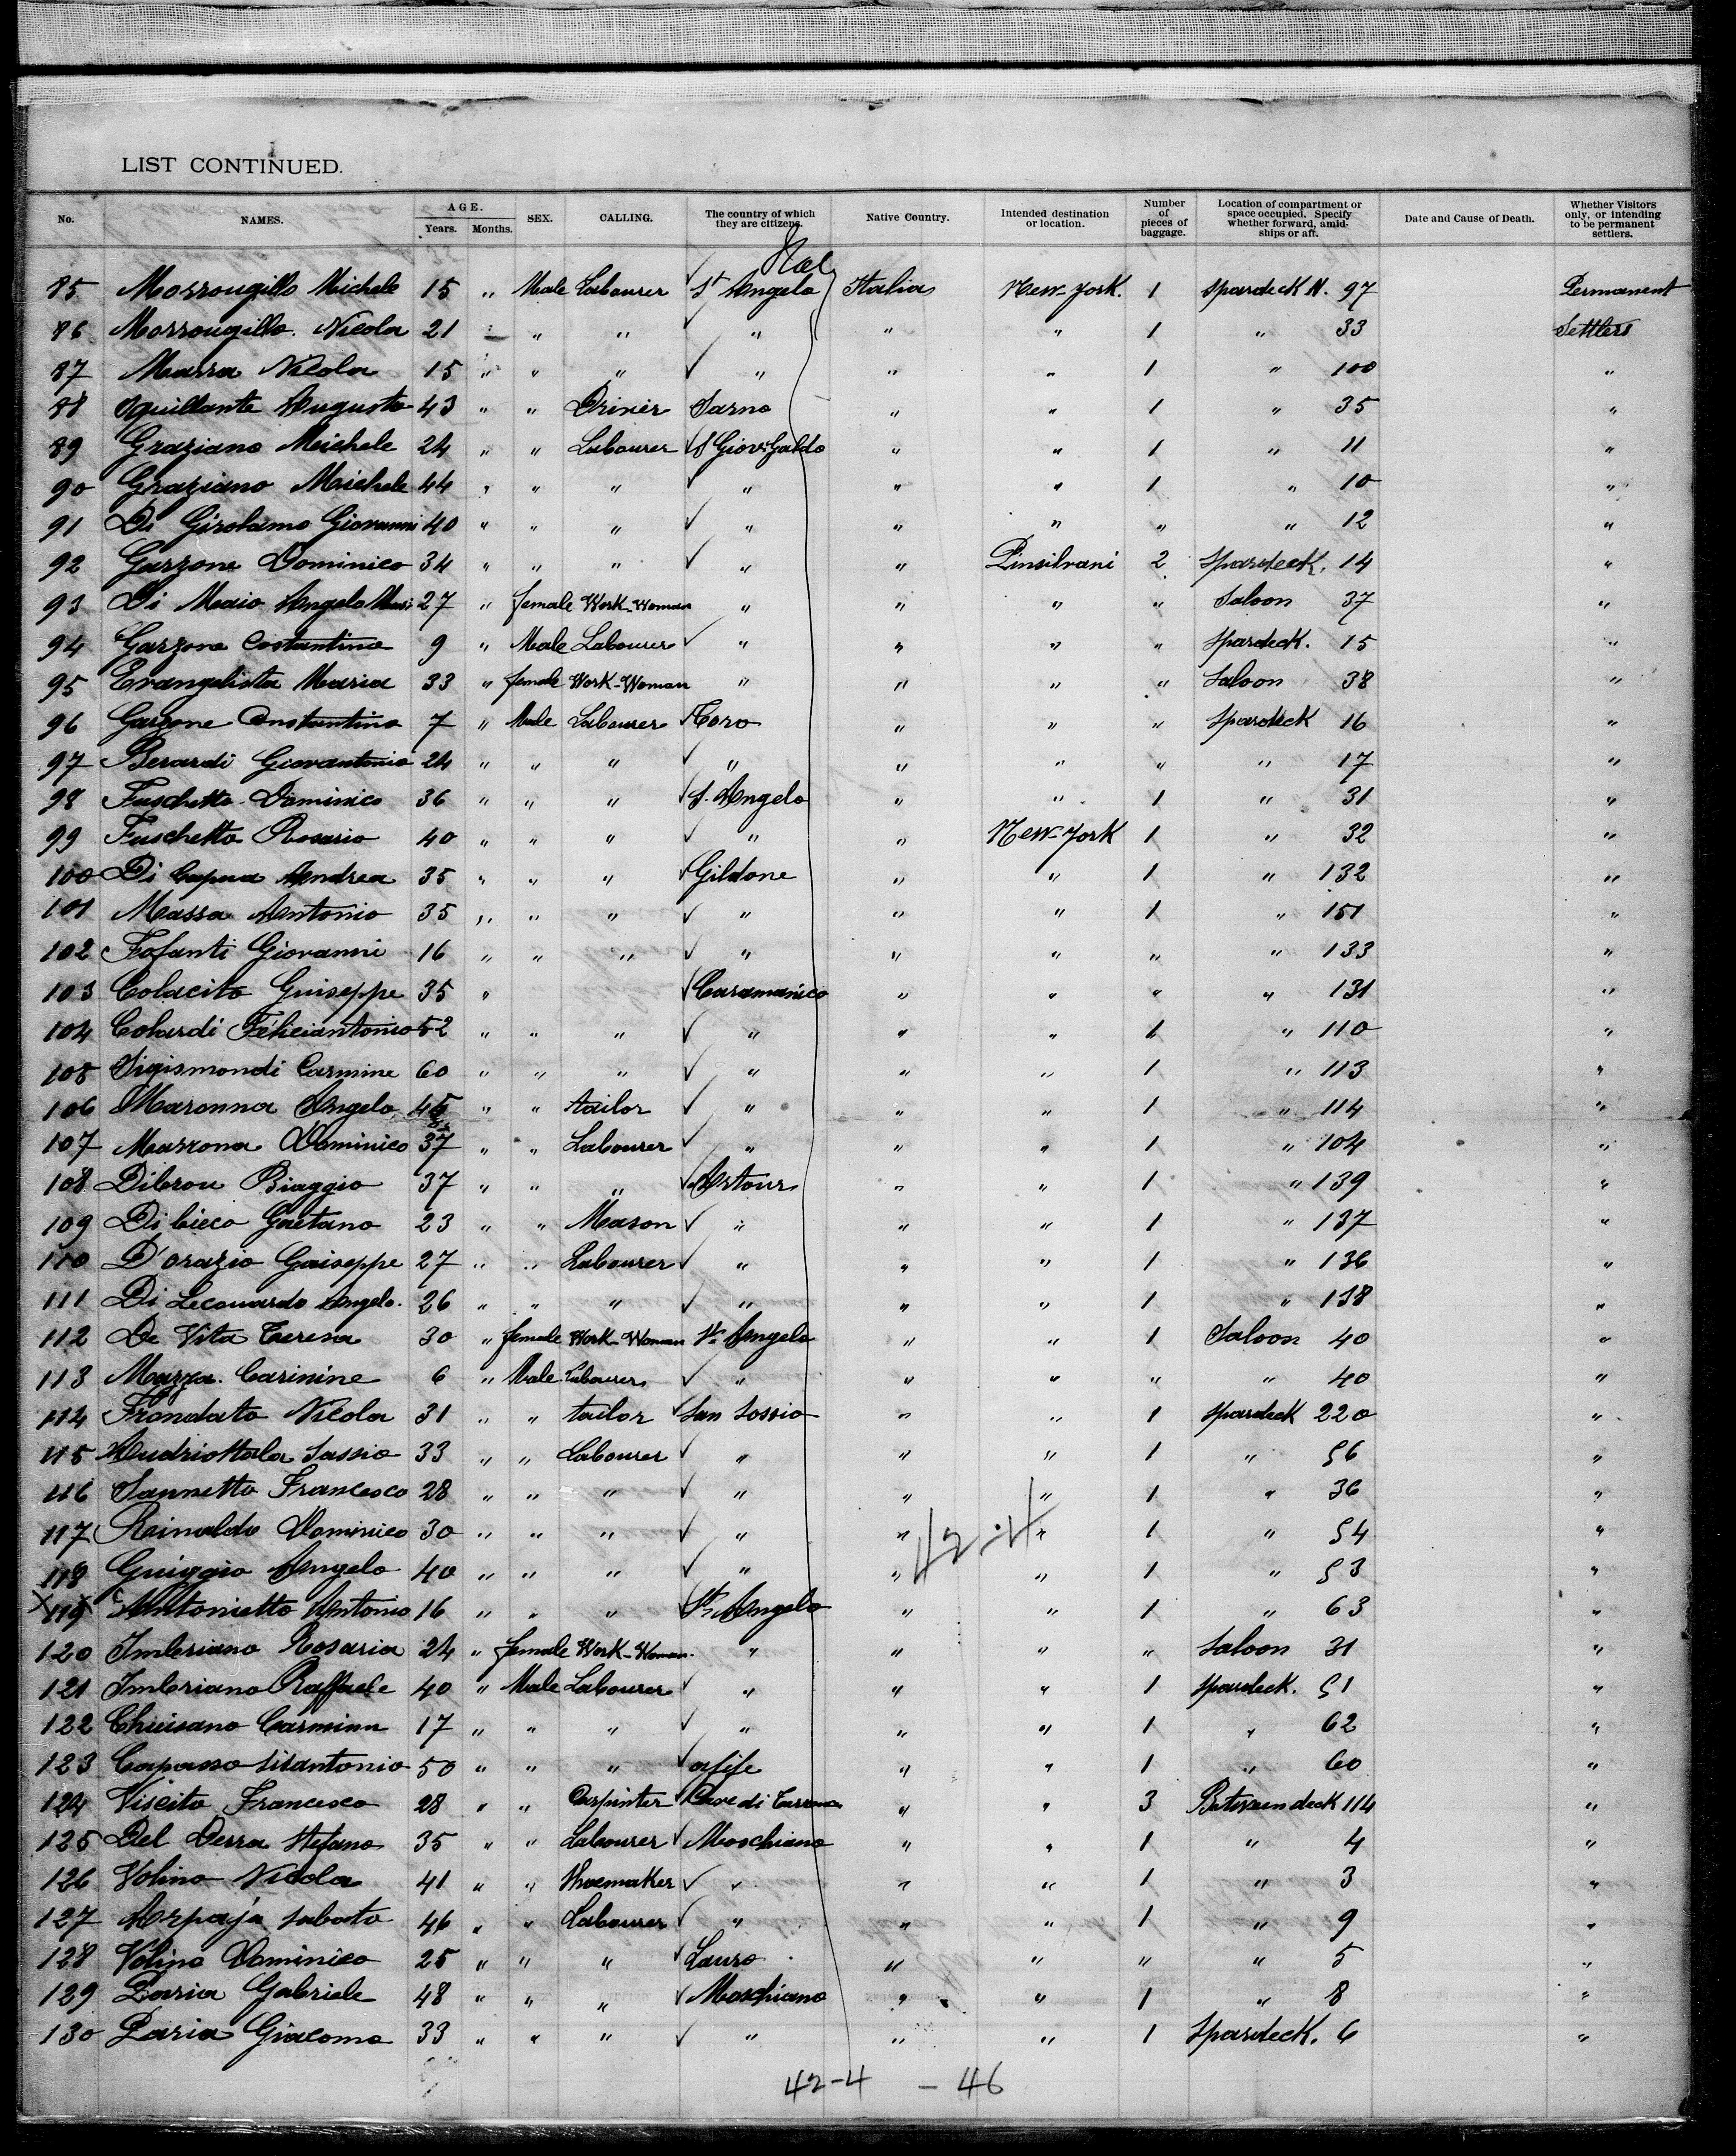 LIST CONTINUED.
No. NAMES. AGE. Years. Months. SEX. CALLING. The country of which they are citizens. Native Country. Intended destination or location. Number of pieces of baggage. Location of compartment or space occupied. Specify whether forward, amidships or aft. Date and Cause of Death. Whether Visitors only, or intending to be permanent settlers.
85 Morrongillo Michele 15 " Male Labourer St Angelo Italia New-York. 1 Spardeck N. 97 Permanent
86 Morrongillo Nicola 21 " " " " " " 1 " 33 Settlers
87 Massa Nicola 15 " " " " " " 1 " 100 "
88 Squillante Augusto 43 " " Driver Sarno " " 1 " 35 "
89 Graziano Michele 24 " " Labourer S Giov. Galdo " " 1 " 11 "
90 Graziano Michele 44 " " " " " " 1 " 10 "
91 Di Girolamo Giovanni 40 " " " " " " " " 12 "
92 Garzone Dominico 34 " " " " " Pinsilvani 2 Spardeck. 14 "
93 Di Maio Angela Mari 27 " female Work-Woman " " " " Saloon 37 "
94 Garzone Costantino 9 " Male Labourer " " " " Spardeck. 15 "
95 Evangelista Maria 33 " female Work-Woman " " " " Saloon 38 "
96 Garzone Constantino 7 " Male Labourer Toro " " " Spardeck 16 "
97 Berardi Giovantonio 24 " " " " " " " " 17 "
98 Fuschetto Dominico 36 " " " S. Angelo " " 1 " 31 "
99 Fuschetto Rosario 40 " " " " " New-York 1 " 32 "
100 Di Capua Andrea 35 " " " Gildone " " 1 " 132 "
101 Massa Antonio 35 " " " " " " 1 " 151 "
102 Fofanti Giovanni 16 " " " " " " " " 133 "
103 Colacito Guiseppe 35 " Caramanico " " " " 131 "
104 Colardi Féliciantonio 52 " " " " " " 1 " 110 "
105 Sigismondi Carmine 60 " " " " " " 1 " 113 "
106 Maronna Angelo 45 " " tailor " " " 1 " 114 "
107 Marrona Dominico 37 " " Labourer " " " 1 " 104 "
108 Dibrou Biaggio 37 " " " " " 1 " 139 "
109 Di Cieco Gaetano 23 " " Mason " " " 1 " 137 "
110 D'orazio Guiseppe 27 " " Labourer " " " 1 " 136 "
111 Di Leonardo Angelo. 26 " " " " " " 1 " 138 "
112 De Vita Teresa 30 " female Work-Woman St. Angelo " " 1 Saloon 40 "
113 Mazza Carinine 6 " Male Labourer " " " " " 40 "
114 Frondato Nicola 31 " " tailor San Sossio " " 1 Spardeck 220 "
115 Sassio 33 " " Labourer " " " 1 " 56 "
116 Sannetto Francesco 28 " " " " " " 1 " 36 "
117 Rainaldo Dominico 30 " " " " " " 1 " 54 "
118 Guiggio Angelo 40 " " " " " " 1 " 53 "
X 119 X Antonietto Antonio 16 " " " St. Angelo " " 1 " 63 "
120 Imbriano Rosaria 24 " female Work-Woman. " " " " Saloon 31 "
121 Imbriano Raffaele 40 " Male Labourer " " " 1 Spardeck. 51 "
122 Chiusano Carmina 17 " " " " " " 1 " 62 "
123 Capasso Lisantonio 50 " " " alife " " 1 " 60 "
124 Viscito Francesco 28 " " Carpinter Cave di " " 3 Betweendeck 114 "
125 Del Derra Stefano 35 " " Labourer Moschiano " " 1 " 4 "
126 Volino Nicola 41 " " Shoemaker " " " 1 " 3 "
127 Arpaja Sabato 46 " " Labourer " " " 1 " 9 "
128 Volino Dominico 25 " " " Lauro " " " " 5 "
129 Daria Gabriele 48 " " " Moschiano " " 1 " 8 "
130 Daria Giacomo 33 " " " " " " 1 Spardeck. 6 "
42-4 - 46